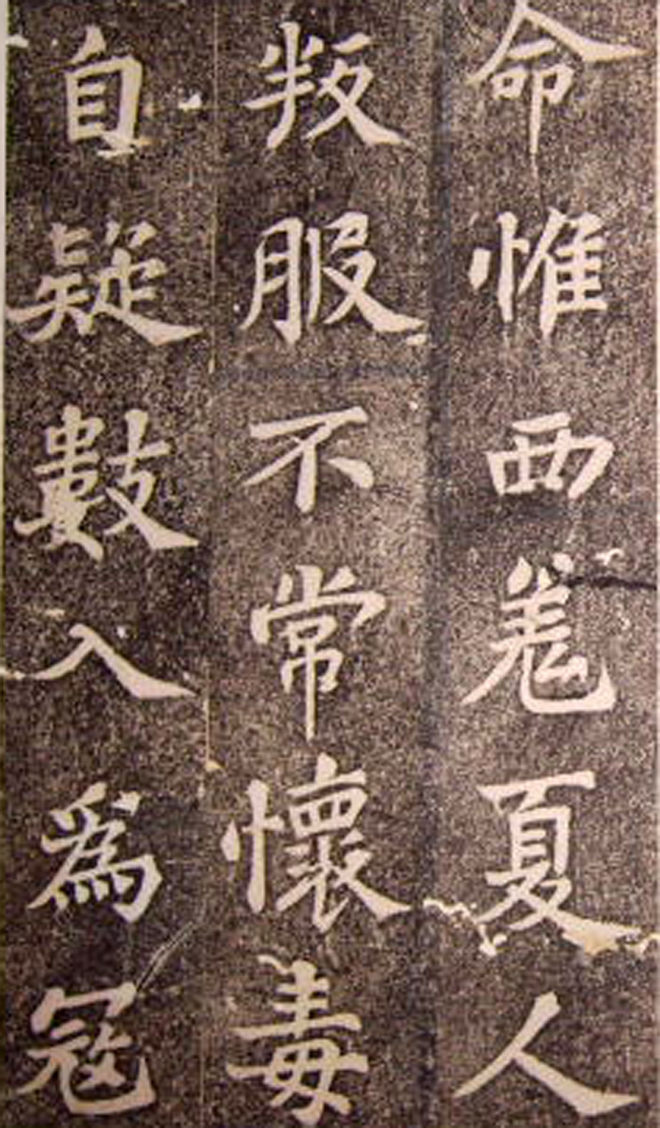 命惟西羌夏人
叛服不常懷毒
自疑數入為寇